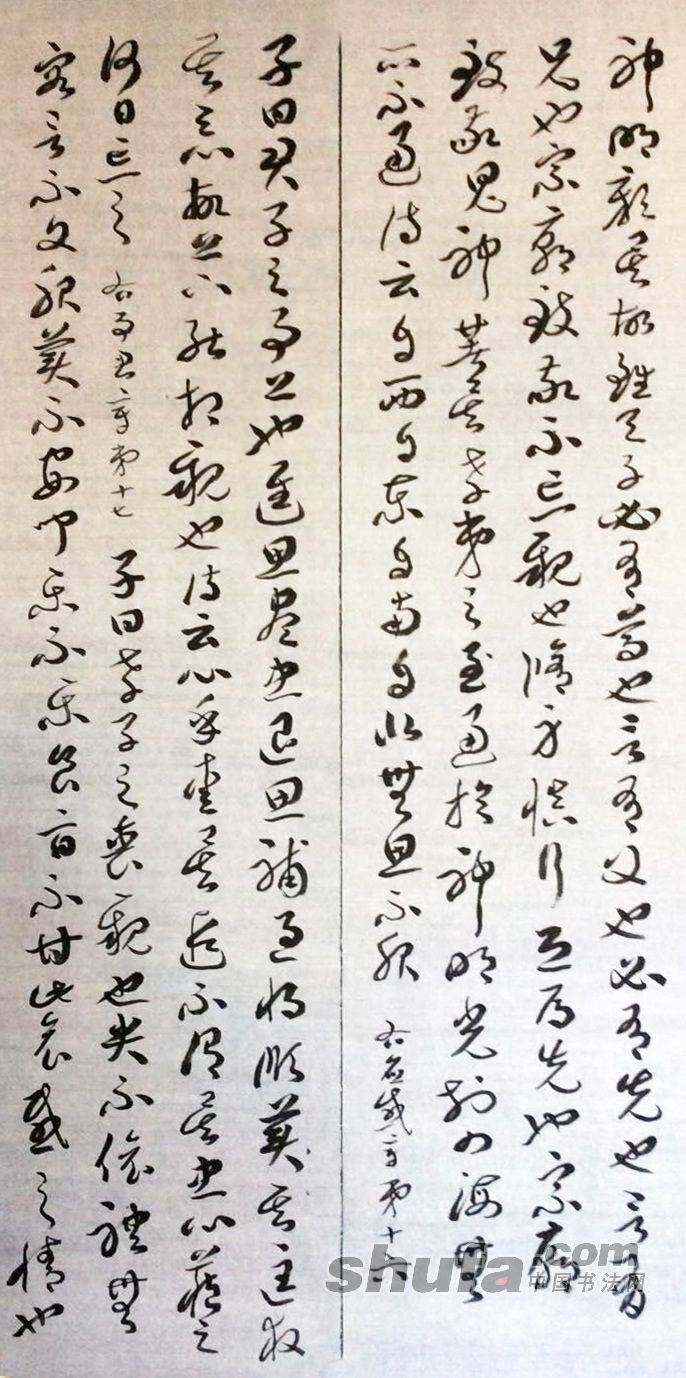 神明彰矣故雖天子必有尊也言有父也必有先也言有
兄也宗廟致敬不忘親也脩身慎行恐辱先也宗廟
致敬鬼神著矣孝弟之至通於神明光於四海無
所不通詩云自西自東自南自北無思不服 右應感章第十六
子曰君子之事上也進思盡忠退思補過將順其美匡救
其惡故上下能相親也詩云心乎愛矣遐不謂矣忠心藏之
何日忘之 右事君章第十七 子曰孝子之喪親也哭不偯禮無
容言不文服美不安聞樂不樂食旨不甘此哀慼之情也
shufa.com
中国书法网